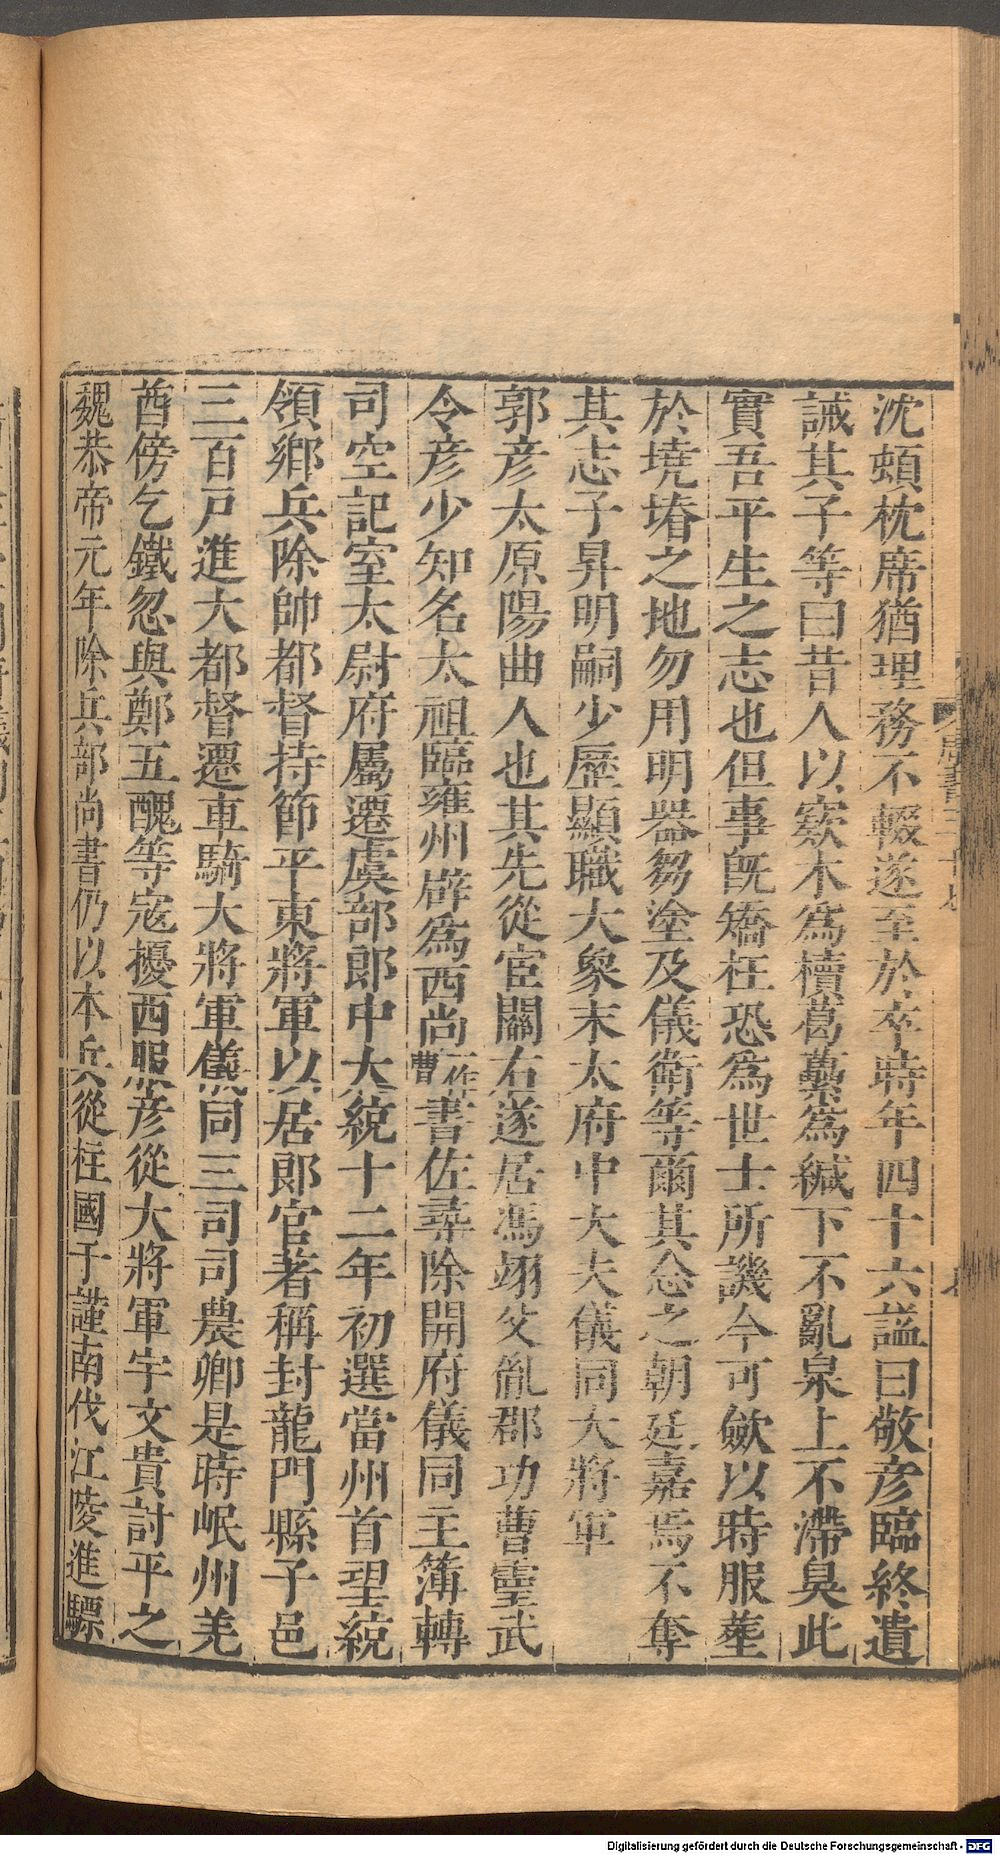 沈頓枕席猶理務不輟遂至於卒時年四十六謚曰敬彦臨終遺
誡其子等曰昔人以窾木爲櫝葛藟爲緘下不亂泉上不滯臭此
實吾平生之志也但事旣矯枉恐爲世士所譏今可斂以時服塟
於墝埆之地勿用明器芻塗及儀衛等爾其念之朝廷嘉焉不奪
其志子昇明嗣少歷顯職大象末太府中大夫儀同大將軍
郭彦太原陽曲人也其先從宦關右遂居馮翊父胤郡功曹靈武
令彦少知名太祖臨雍州辟爲西尚一作曹書佐尋除開府儀同主簿轉
司空記室太尉府屬遷虞部郎中大統十二年初選當州首望統
領鄉兵除帥都督持節平東將軍以居郎官著稱封龍門縣子邑
三百戸進大都督遷車騎大將軍儀同三司司農卿是時岷州羌
酋傍乞鐵忽與鄭五醜等寇擾西服彦從大將軍宇文貴討平之
魏恭帝元年除兵部尚書仍以本兵從柱國于謹南伐江陵進驃
周書三十七
Digitalisierung gefördert durch die Deutsche Forschungsgemeinschaft - DFG